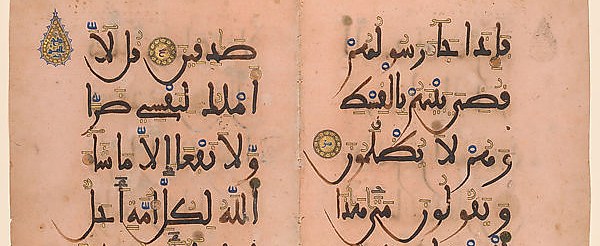 فإذا جاء رسولهم
قضي بينهم بالقسط
وهم لا يظلمون
ويقولون متى هذا
صدقين قل لا
أملك لنفسي ضرا
ولا نفعا إلا ما شاء
الله لكل أمة أجل